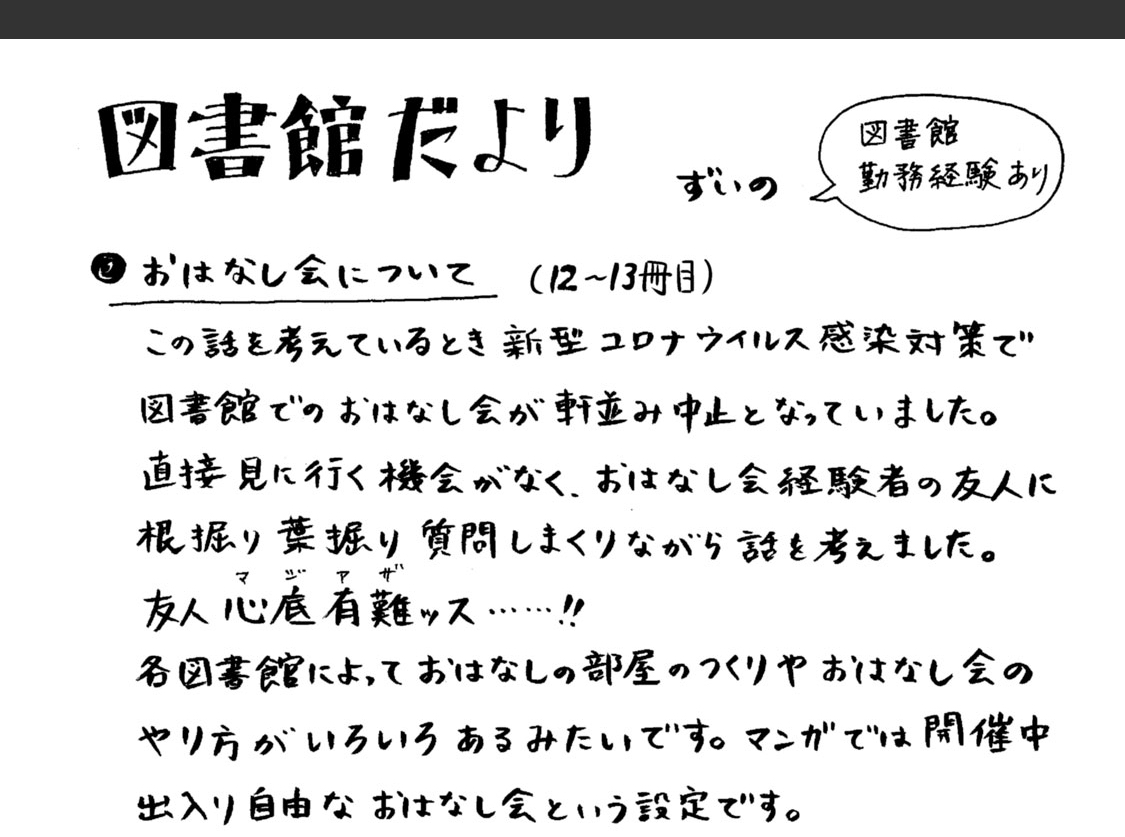 図書館だより
ずいの
図書館
勤務経験あり
おはなし会について (12~13冊目)
この話を考えているとき新型コロナウイルス感染対策で
図書館でのおはなし会が軒並み中止となっていました。
直接見に行く機会がなく、おはなし会経験者の友人に
根掘り葉掘り質問しまくりながら話を考えました。
マジアザ
友人心底有難ッス……!!
各図書館によっておはなしの部屋のつくりやおはなし会の
やり方がいろいろあるみたいです。マンガでは開催中
出入り自由なおはなし会という設定です。